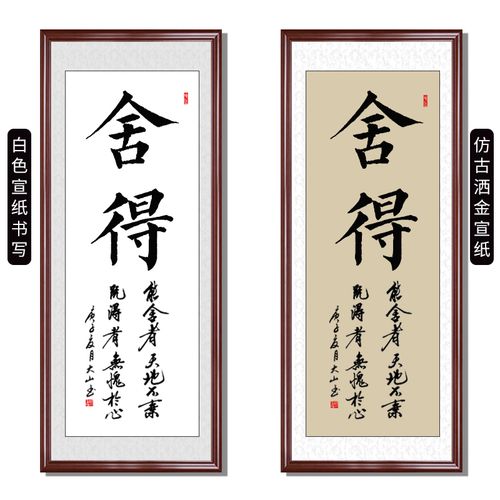 白色宣纸书写
舍得
能舍者天地不棄
既得者無愧於心
庚子夏月大山书
舍得
能舍者天地不棄
既得者無愧於心
庚子夏月大山书
仿古洒金宣纸